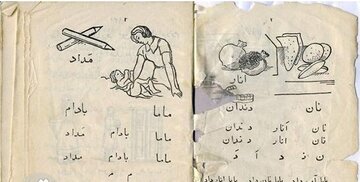 انار
نان دندان
نان انار دندان
نان انار دندان
مداد
ماما بادام
ماما بادام مداد
ماما بادام مداد